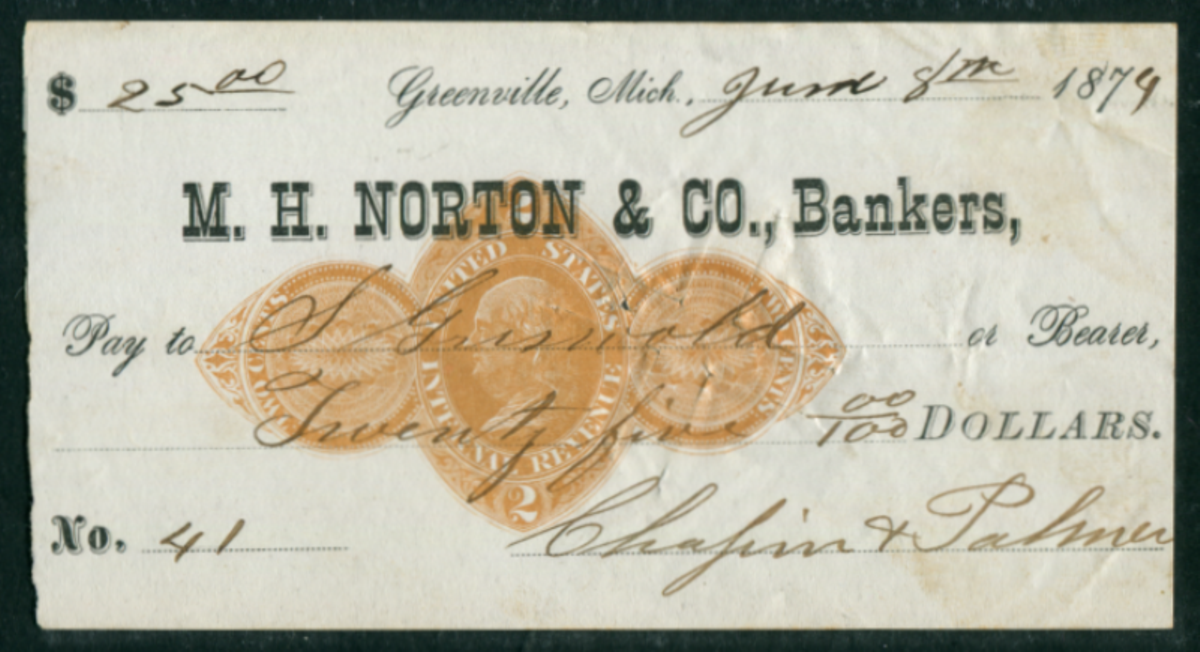 $ 25 00 Greenville, Mich., June 8th 1874
M. H. NORTON & CO., Bankers,
UNITED STATES
TWO CENTS
Pay to S Griswold or Bearer,
INTERNAL REVENUE
Twenty five 00/100 DOLLARS.
2
No. 41 Chapin & Palmer